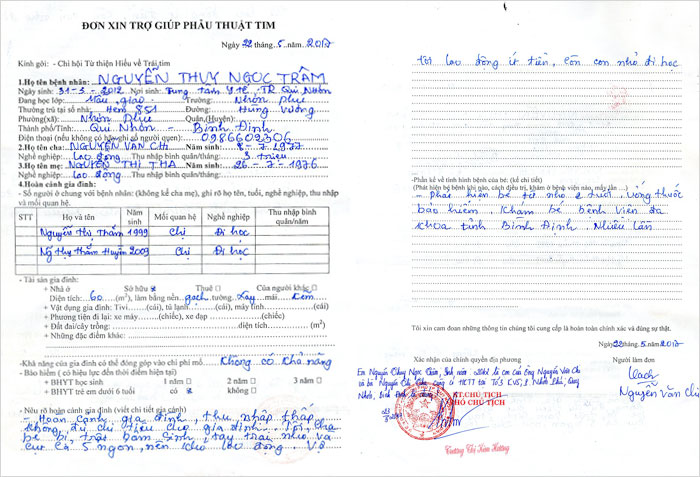 ĐƠN XIN TRỢ GIÚP PHẪU THUẬT TIM
Ngày 22 tháng 5 năm 2017
Kính gởi: - Chi hội Từ thiện Hiểu về Trái tim
1.Họ tên bệnh nhân: NGUYỄN THỤY NGỌC TRÂM
Ngày sinh: 31-3-2012 Nơi sinh: Trung tâm Y tế, TP. Qui Nhơn
Đang học lớp: Mẫu giáo Trường: Nhơn Phú
Thường trú tại số nhà: Hẻm 851 Đường: Hùng Vương
Phường(xã): Nhơn Phú Quận,(Huyện):
Thành phố/Tỉnh: Qui Nhơn - Bình Định
Điện thoại (nếu không có hãy ghi số người quen): 0986602306
2.Họ tên cha: NGUYỄN VĂN CHI Năm sinh: 7-1977
Nghề nghiệp: Lao động Thu nhập bình quân/tháng: 3 triệu
3.Họ tên mẹ: NGUYỄN THỊ THA Năm sinh: 26-7-1976
Nghề nghiệp: Lao động Thu nhập bình quân/tháng:
4.Hoàn cảnh gia đình:
- Số người ở chung với bệnh nhân: (không kể cha mẹ), ghi rõ họ tên, tuổi, nghề nghiệp, thu nhập
và mối quan hệ.
STT Họ và tên Năm sinh Mối quan hệ Nghề nghiệp Thu nhập bình quân/năm
Nguyễn Thị Thắm 1999 Chị Đi học
Ng Thụy Thắm Huyền 2009 Chị Đi học
- Tài sản gia đình:
+ Nhà ở Sở hữu Thuê Của người khác
Diện tích: 60 (m²), làm bằng nền gạch tường xây mái tôn
+ Vật dụng gia đình: Tivi (cái), tủ lạnh (cái), máy tính (cái)
+ Phương tiện đi lại: xe máy (chiếc), xe đạp (chiếc)
+ Đất đai/cây trồng: diện tích (m²)
+ Những đặc điểm khác:
-Khả năng của gia đình có thể đóng góp vào chi phí mổ: Không có khả năng
- Bảo hiểm (có hiệu lực đến thời điểm hiện tại)
+ BHYT học sinh 1 năm 2 năm 3 năm
+ BHYT trẻ em dưới 6 tuổi có không
- Nêu rõ hoàn cảnh gia đình (viết chi tiết gia cảnh)
- Hoàn cảnh gia đình thu nhập thấp
không đủ chi tiêu cho gia đình. Tôi cha
bé bị tật bẩm sinh, tay trái nhỏ và
cụt cả 5 ngón, nên khó lao động. Vợ
tôi lao động ít tiền, còn con nhỏ đi học
-Phần kể về tình hình bệnh của bé: (kể chi tiết)
(Phát hiện bị bệnh khi nào, cách điều trị, khám ở bệnh viện nào, mấy lần...)
- phát hiện bé từ nhỏ 2 tuổi, uống thuốc
bảo hiểm. Khám bé bệnh viện đa
khoa tỉnh Bình Định. Nhiều lần
Tôi xin cam đoan những thông tin chúng tôi cung cấp là hoàn toàn chính xác và đúng sự thật.
Ngày 22 tháng 5 năm 2017
Xác nhận của chính quyền địa phương Người làm đơn
Em Nguyễn Thụy Ngọc Trâm, sinh năm 2012 là con của ông Nguyễn Văn Chi
KT.CHỦ TỊCH
PHÓ CHỦ TỊCH
Nguyễn Văn Chi
Trương Thị Kim Hương